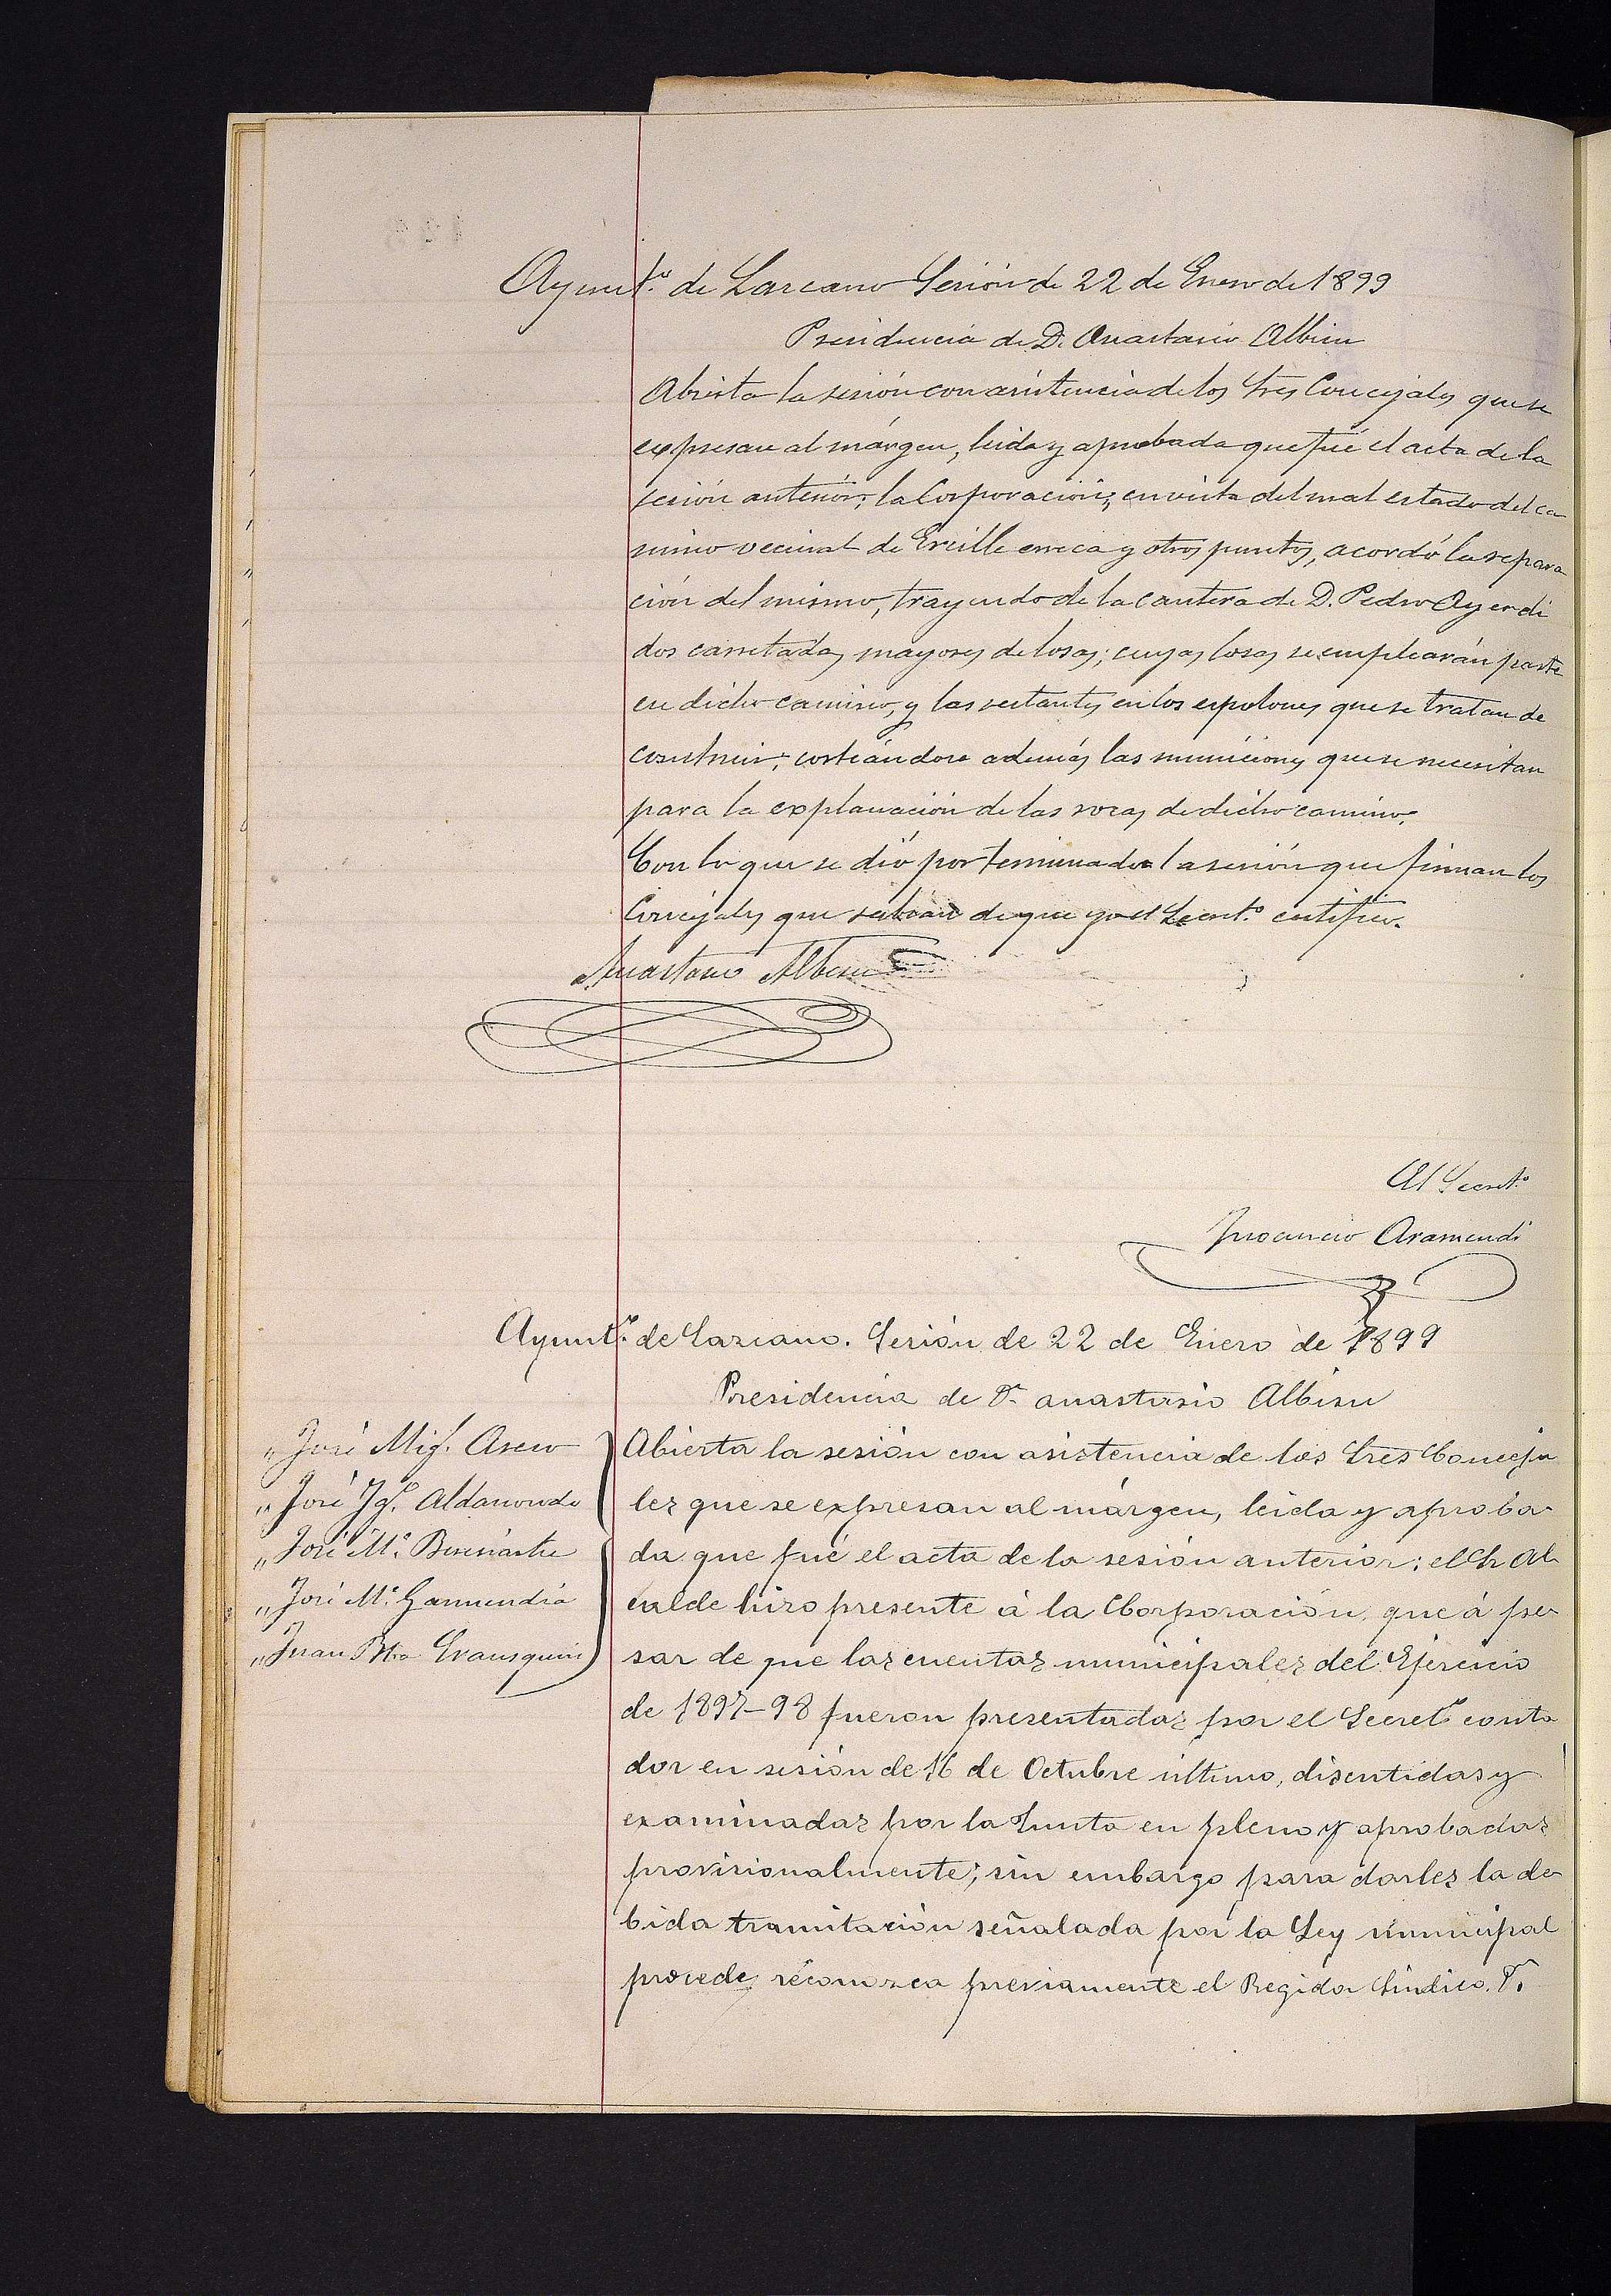 Ayunt.º de Lazcano Sesión de 22 de Enero de 1899
Presidencia de D. Anastasio Albisu
Abierta la sesión con asistencia de los Sres Concejales que se
expresan al márgen, leida y aprobada que fué el acta de la
sesión anterior; la Corporación, en vista del mal estado del ca
mino vecinal de Ercille erreca y otros puntos, acordó la repara
ción del mismo, trayendo de la cantera de D. Pedro Ayerdi
dos carretadas mayores de losas; cuyas losas se emplearán parte
en dicho camino, y las restantes en los espolones que se tratan de
construir; costeándose además las municiones que se necesitan
para la explanación de las rocas de dicho camino.
Con lo que se dió por terminada la sesión que firman los
Concejales que sabían de que yo el Secret.º certifico.
Anastasio Albisu
El Secret.º
Inocencio Aramendi
Ayunt.º de Lazcano. Sesión de 22 de Enero de 1899
Presidencia de Dn. Anastasio Albisu
„ José Mig.l
„ José Ig.º Aldanondo
„ José M.ª
„ José M.ª Garmendia
„ Juan Bta
Abierta la sesión con asistencia de los Sres Conceja
les que se expresan al márgen, leida y aproba-
da que fué el acta de la sesión anterior; el Sr Al-
calde hizo presente á la Corporación, que á pe-
sar de que las cuentas municipales del Ejercicio
de 1897-98 fueron presentadas por el Secretº conta
dor en sesión de 16 de Octubre último, discutidas y
examinadas por la Junta en pleno y aprobadas
provisionalmente; sin embargo para darles la de-
bida tramitación señalada por la Ley municipal
procede, reconozca previamente el Regidor Síndico. D.